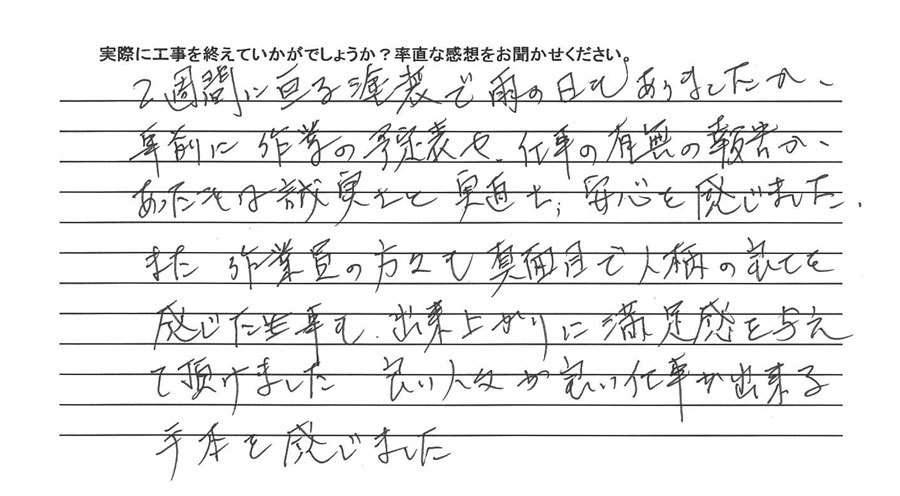 実際に工事を終えていかがでしょうか？率直な感想をお聞かせください。
2週間に亘る塗装で雨の日もありましたが、
事前に作業の予定表や、仕事の有無の報告が、
あった事は誠実さと実直さ、安心を感じました。
また 作業員の方々も真面目で人柄の良さを
感じた仕事も、出来上がりに満足感を与え
て頂けました 良い人々が良い仕事が出来る
手本を感じました